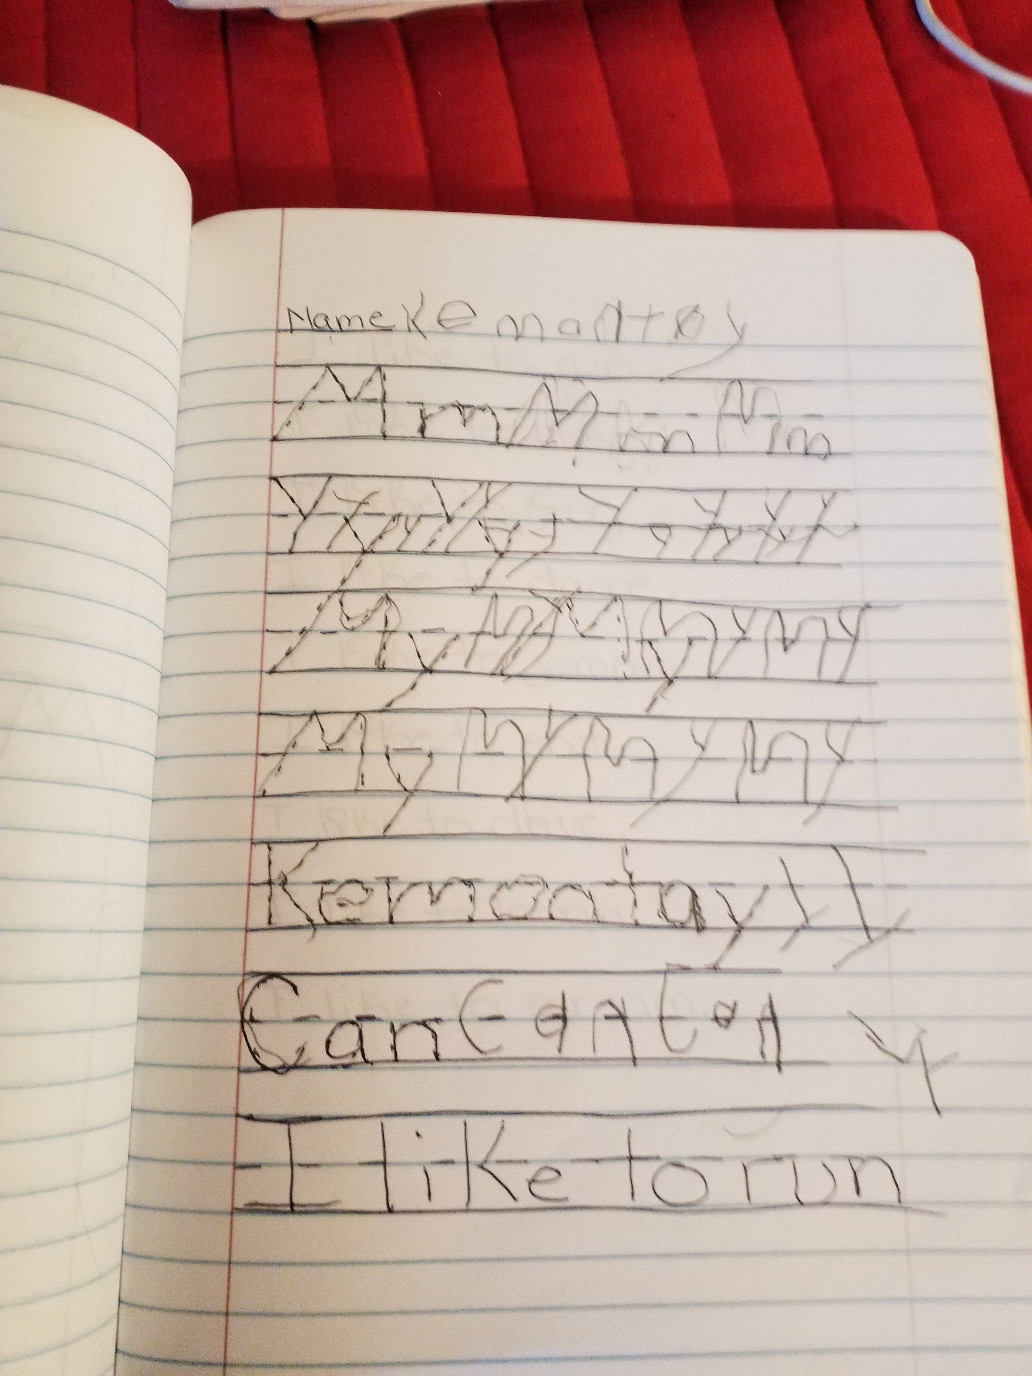 Name Kemantay
M m M m M m
Y y Y y Y y Y y
My My My My My
My My My My
Kemontay
Can Can Can
I like to run